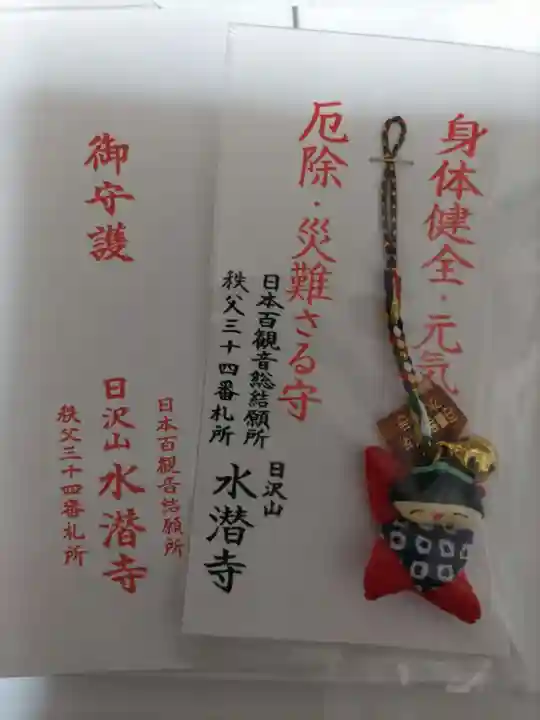 身体健全・元気
厄除・災難さる守
日本百観音総結願所
秩父三十四番札所
日沢山
水潜寺
御守護
日本百観音結願所
日沢山水潜寺
秩父三十四番札所